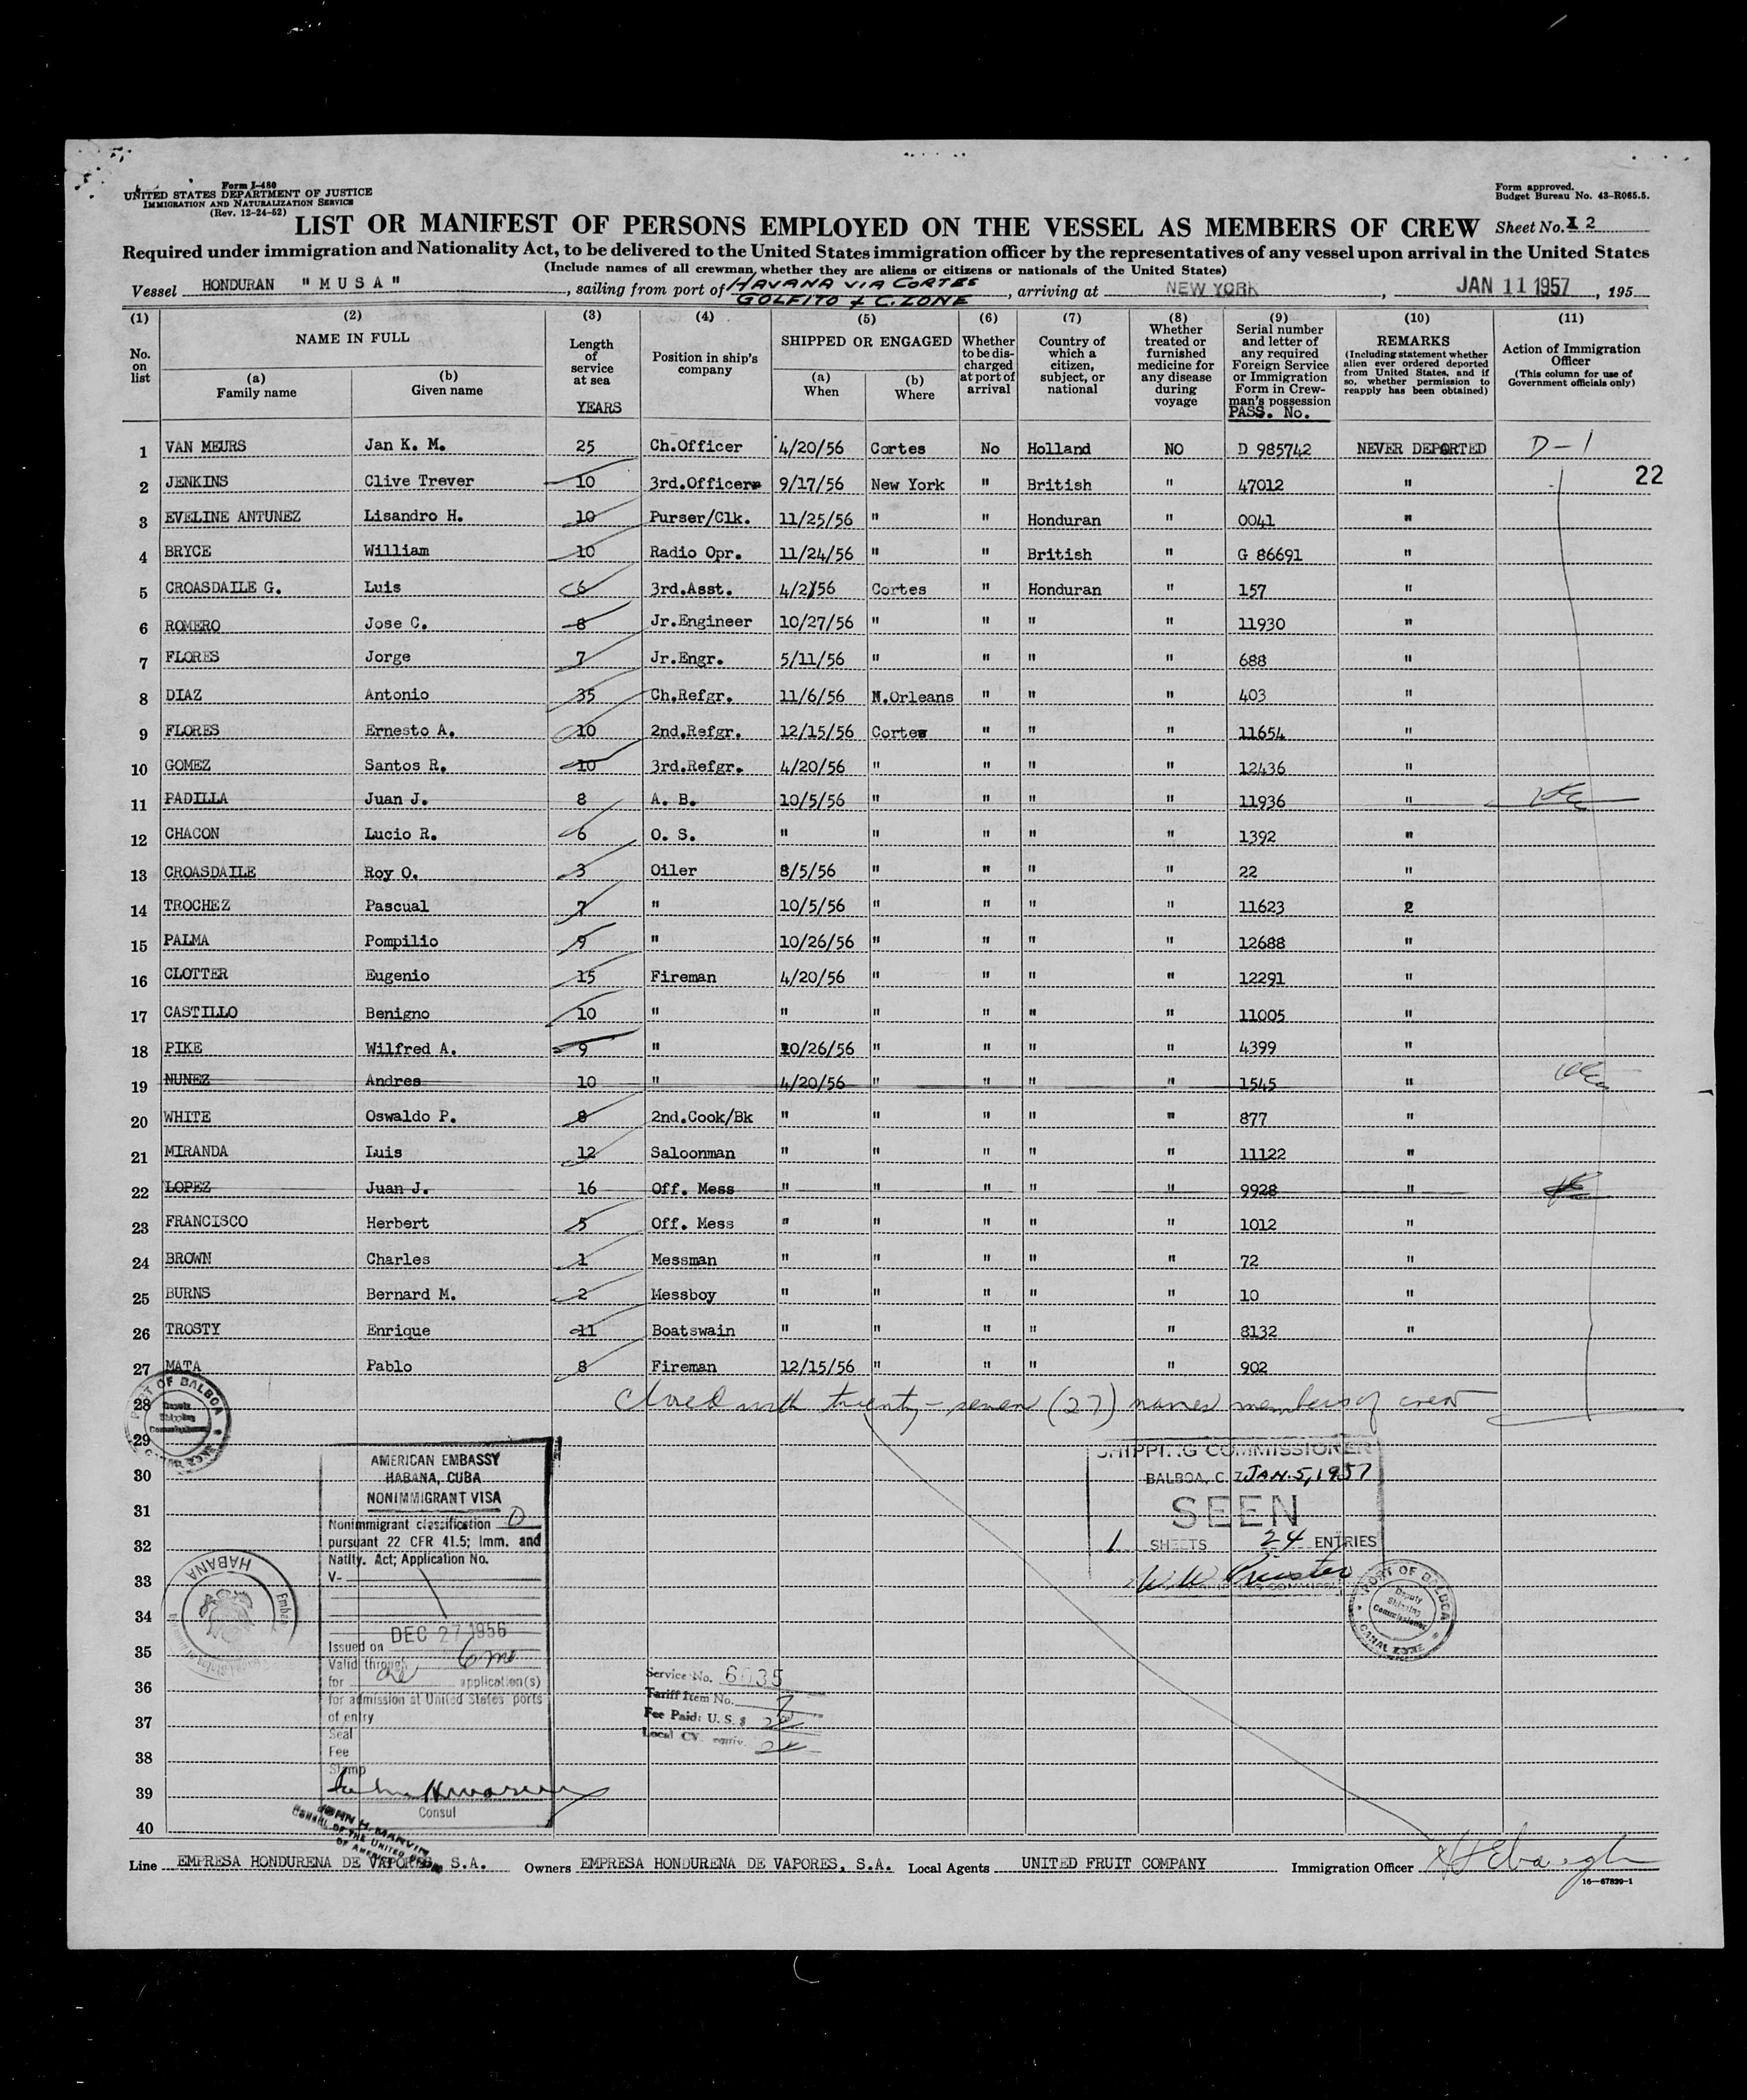 Form I-480
UNITED STATES DEPARTMENT OF JUSTICE
IMMIGRATION AND NATURALIZATION SERVICE
(Rev. 12-24-52)
Form approved.
Budget Bureau No. 43-R065.5.
LIST OR MANIFEST OF PERSONS EMPLOYED ON THE VESSEL AS MEMBERS OF CREW Sheet No. 2
Required under immigration and Nationality Act, to be delivered to the United States immigration officer by the representatives of any vessel upon arrival in the United States
(Include names of all crewman whether they are aliens or citizens or nationals of the United States)
Vessel HONDURAN "MUSA", sailing from port of HAVANA VIA CORTES GOLFITO & C. ZONE, arriving at NEW YORK, JAN 11 1957, 195
(1) No. on list
(2) NAME IN FULL
(a) Family name
(b) Given name
(3) Length of service at sea YEARS
(4) Position in ship's company
(5) SHIPPED OR ENGAGED
(a) When
(b) Where
(6) Whether to be discharged at port of arrival
(7) Country of which a citizen, subject, or national
(8) Whether treated or furnished medicine for any disease during voyage
(9) Serial number and letter of any required Foreign Service or Immigration Form in Crewman's possession PASS. No.
(10) REMARKS (Including statement whether alien ever ordered deported from United States, and if so, whether permission to reapply has been obtained)
(11) Action of Immigration Officer (This column for use of Government officials only)
1 VAN MEURS Jan K. M. 25 Ch.Officer 4/20/56 Cortes No Holland NO D 985742 NEVER DEPORTED D-1
22
2 JENKINS Clive Trever 10 3rd.Officer 9/17/56 New York " British " 47012 "
3 EVELINE ANTUNEZ Lisandro H. 10 Purser/Clk. 11/25/56 " " Honduran " 0041 "
4 BRYCE William 10 Radio Opr. 11/24/56 " " British " G 86691 "
5 CROASDAILE G. Luis 6 3rd.Asst. 4/2/56 Cortes " Honduran " 157 "
6 ROMERO Jose C. 8 Jr.Engineer 10/27/56 " " " " 11930 "
7 FLORES Jorge 7 Jr.Engr. 5/11/56 " " " " 688 "
8 DIAZ Antonio 35 Ch.Refgr. 11/6/56 N.Orleans " " " 403 "
9 FLORES Ernesto A. 10 2nd.Refgr. 12/15/56 Cortes " " " 11654 "
10 GOMEZ Santos R. 10 3rd.Refgr. 4/20/56 " " " " 12436 "
11 PADILLA Juan J. 8 A. B. 10/5/56 " " " " 11936 "
12 CHACON Lucio R. 6 O. S. " " " " " 1392 "
13 CROASDAILE Roy O. 3 Oiler 8/5/56 " " " " 22 "
14 TROCHEZ Pascual 7 " 10/5/56 " " " " 11623 2
15 PALMA Pompilio 9 " 10/26/56 " " " " 12688 "
16 CLOTTER Eugenio 15 Fireman 4/20/56 " " " " 12291 "
17 CASTILLO Benigno 10 " " " " " " 11005 "
18 PIKE Wilfred A. 9 " 10/26/56 " " " " 4399 "
19 NUNEZ Andres 10 " 4/20/56 " " " " 1545 "
20 WHITE Oswaldo P. 8 2nd.Cook/Bk " " " " " 877 "
21 MIRANDA Luis 12 Saloonman " " " " " 11122 "
22 LOPEZ Juan J. 16 Off. Mess " " " " " 9928 "
23 FRANCISCO Herbert 5 Off. Mess " " " " " 1012 "
24 BROWN Charles 1 Messman " " " " " 72 "
25 BURNS Bernard M. 2 Messboy " " " " " 10 "
26 TROSTY Enrique 11 Boatswain " " " " " 8132 "
27 MATA Pablo 8 Fireman 12/15/56 " " " " 902
28 Closed with twenty-seven (27) names members of crew
29
30
31
32
33
34
35
36
37
38
39
40
PORT OF BALBOA
Deputy Shipping Commissioner
CANAL ZONE
AMERICAN EMBASSY
HABANA, CUBA
NONIMMIGRANT VISA
Nonimmigrant classification D
pursuant 22 CFR 41.5; Imm. and
Natlty. Act; Application No.
V-
Issued on DEC 27 1956
Valid through 6 mo
for one application(s)
for admission at United States ports
of entry
Seal
Fee
Stamp
Consul
JOHN H. MARVIN
CONSUL OF THE UNITED STATES
OF AMERICA
HABANA
Service No. 6035
Tariff Item No. 7
Fee Paid: U. S. $
Local CY. equiv.
SHIPPING COMMISSIONER
BALBOA, C. Z. JAN. 5, 1957
SEEN
1 SHEETS 24 ENTRIES
PORT OF BALBOA
Deputy Shipping Commissioner
CANAL ZONE
Line EMPRESA HONDURENA DE VAPORES, S.A. Owners EMPRESA HONDURENA DE VAPORES, S.A. Local Agents UNITED FRUIT COMPANY Immigration Officer
16—67829-1